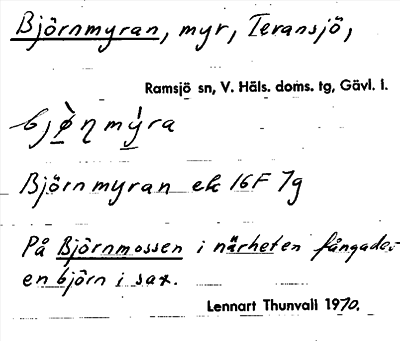 Björnmyran, myr, Teransjö,
Ramsjö sn, V. Häls. doms. tg, Gävl. l.
bjø̀ɳmýra
Björnmyran ek 16F 7g
På Björnmossen i närheten fångades
en björn i sax.
Lennart Thunvall 1970.